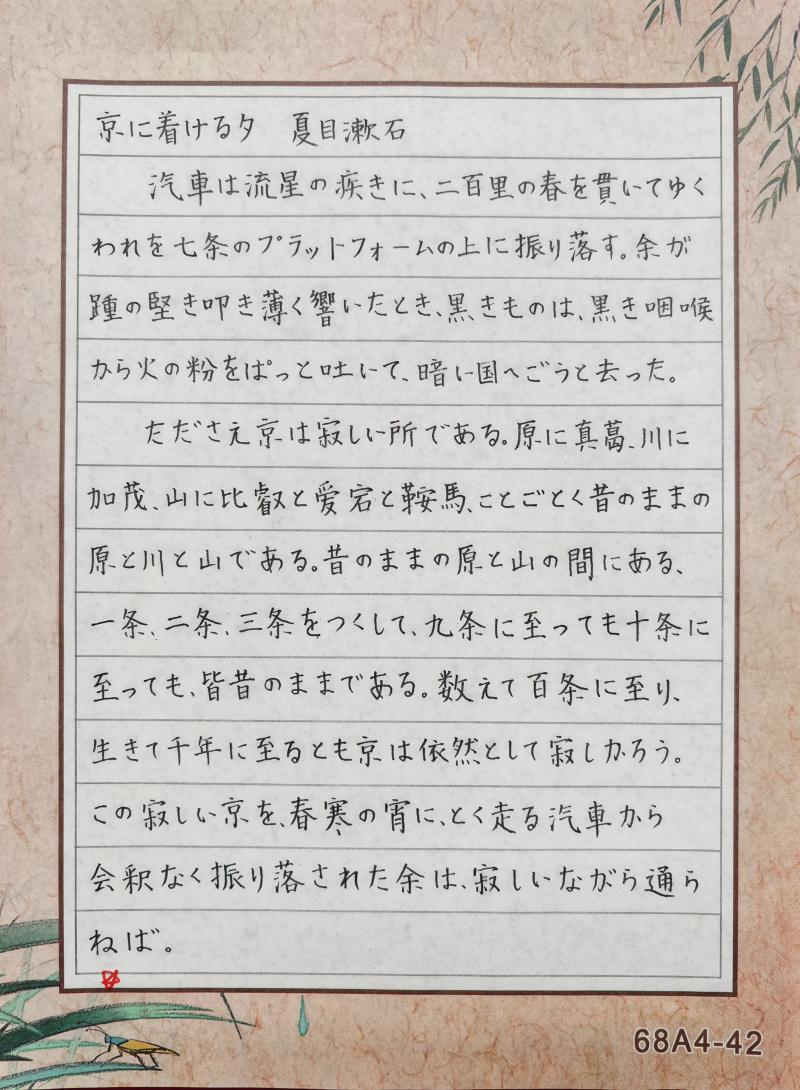 京に着ける夕　夏目漱石
汽車は流星の疾きに、二百里の春を貫いてゆく
われを七条のプラットフォームの上に振り落す。余が
踵の堅き叩き薄く響いたとき、黒きものは、黒き咽喉
から火の粉をぱっと吐いて、暗い国へごうと去った。
たださえ京は寂しい所である。原に真葛、川に
加茂、山に比叡と愛宕と鞍馬、ことごとく昔のままの
原と川と山である。昔のままの原と山の間にある、
一条、二条、三条をつくして、九条に至っても十条に
至っても、皆昔のままである。数えて百条に至り、
生きて千年に至るとも京は依然として寂しかろう。
この寂しい京を、春寒の宵に、とく走る汽車から
会釈なく振り落された余は、寂しいながら通ら
ねば。
68A4-42